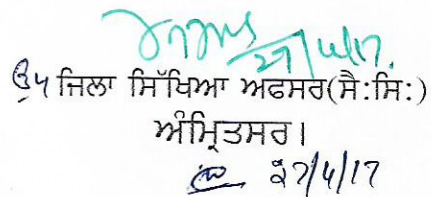 27/4/17.
ਉਪ ਜਿਲਾ ਸਿੱਖਿਆ ਅਫਸਰ(ਸੈ:ਸਿ:)
ਅੰਮ੍ਰਿਤਸਰ।
27/4/17